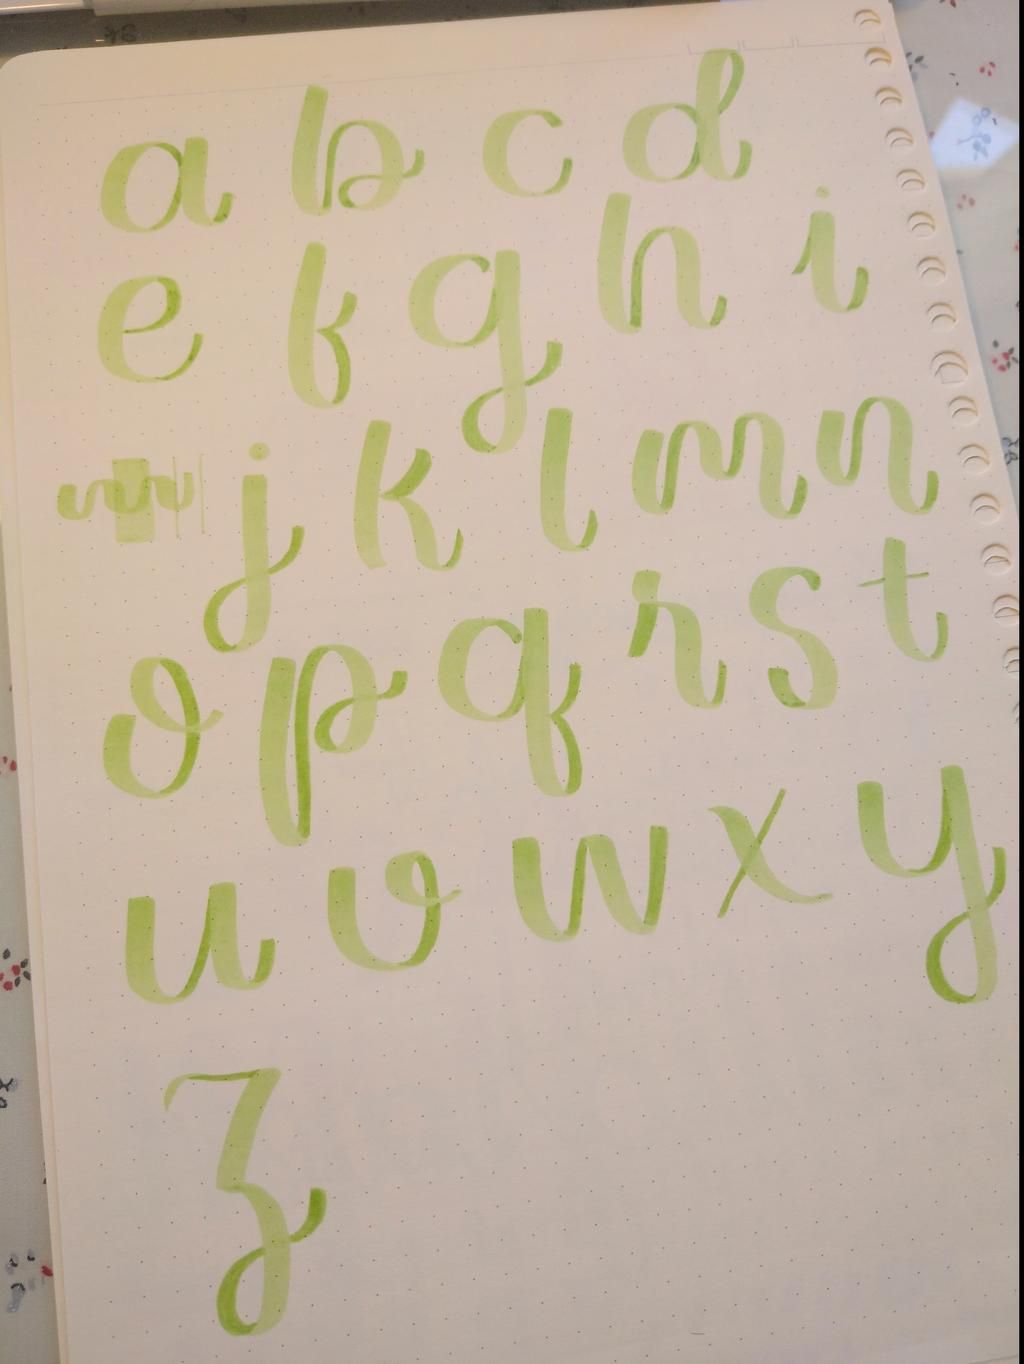 a b c d
e f g h i
j k l m n
o p q r s t
u v w x y
z